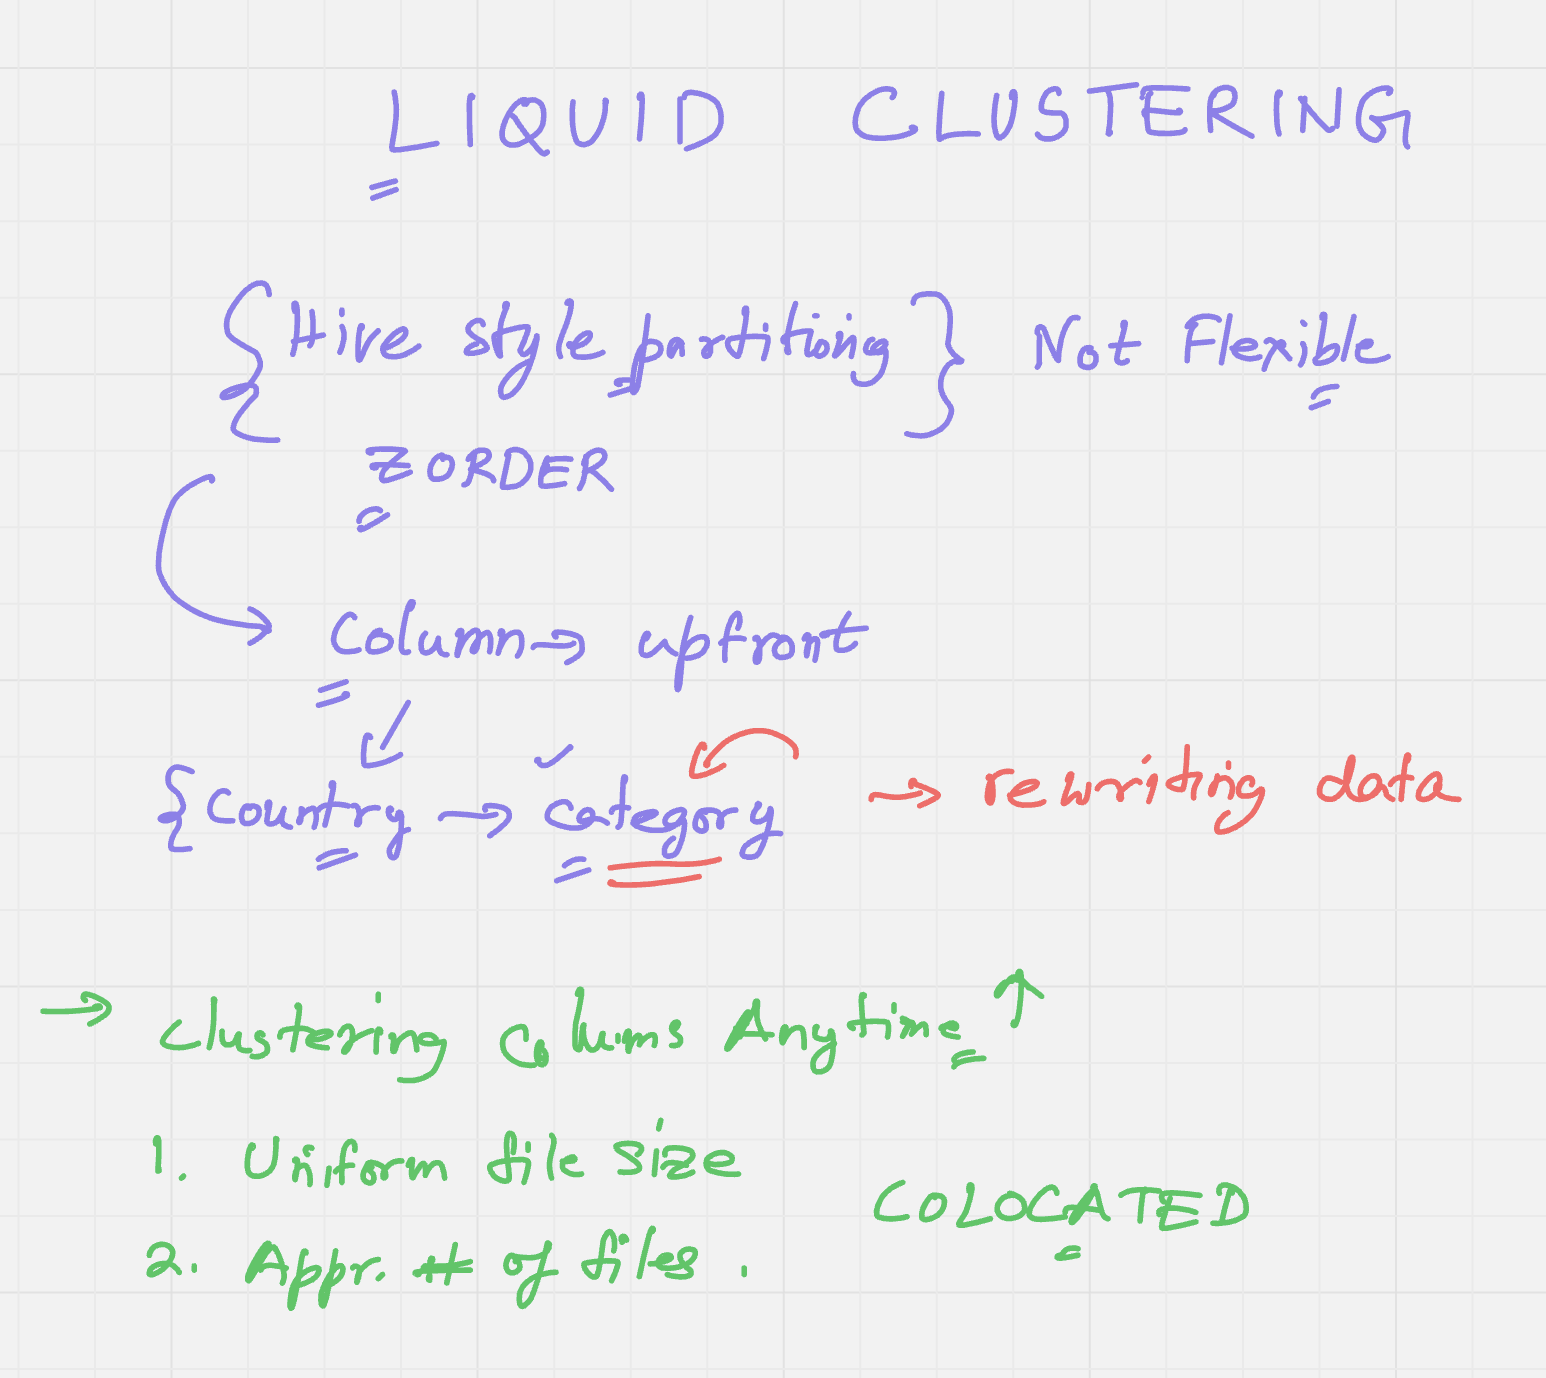 LIQUID CLUSTERING
{Hive style partitiong} Not Flexible
ZORDER
Column → upfront
{Country → category → rewriting data
→ Clustering Colums Anytime ↑
1. Uniform file size
COLOCATED
2. Appr. # of files.